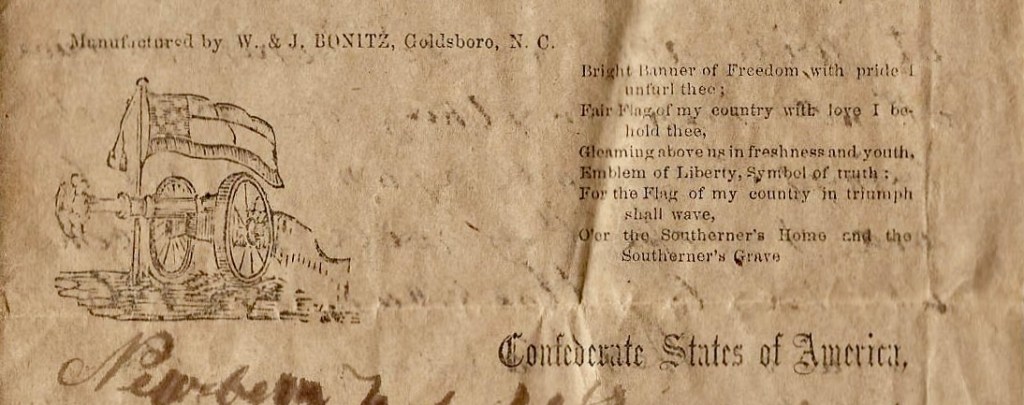 Manufactured by W. & J. BONITZ, Goldsboro, N. C.
Bright Banner of Freedom with pride I
unfurl thee;
Fair Flag of my country with love I be-
hold thee,
Gleaming above us in freshness and youth,
Emblem of Liberty, Symbol of truth;
For the Flag of my country in triumph
shall wave,
O'er the Southerner's Home and the
Southerner's Grave
Confederate States of America.
Newbern